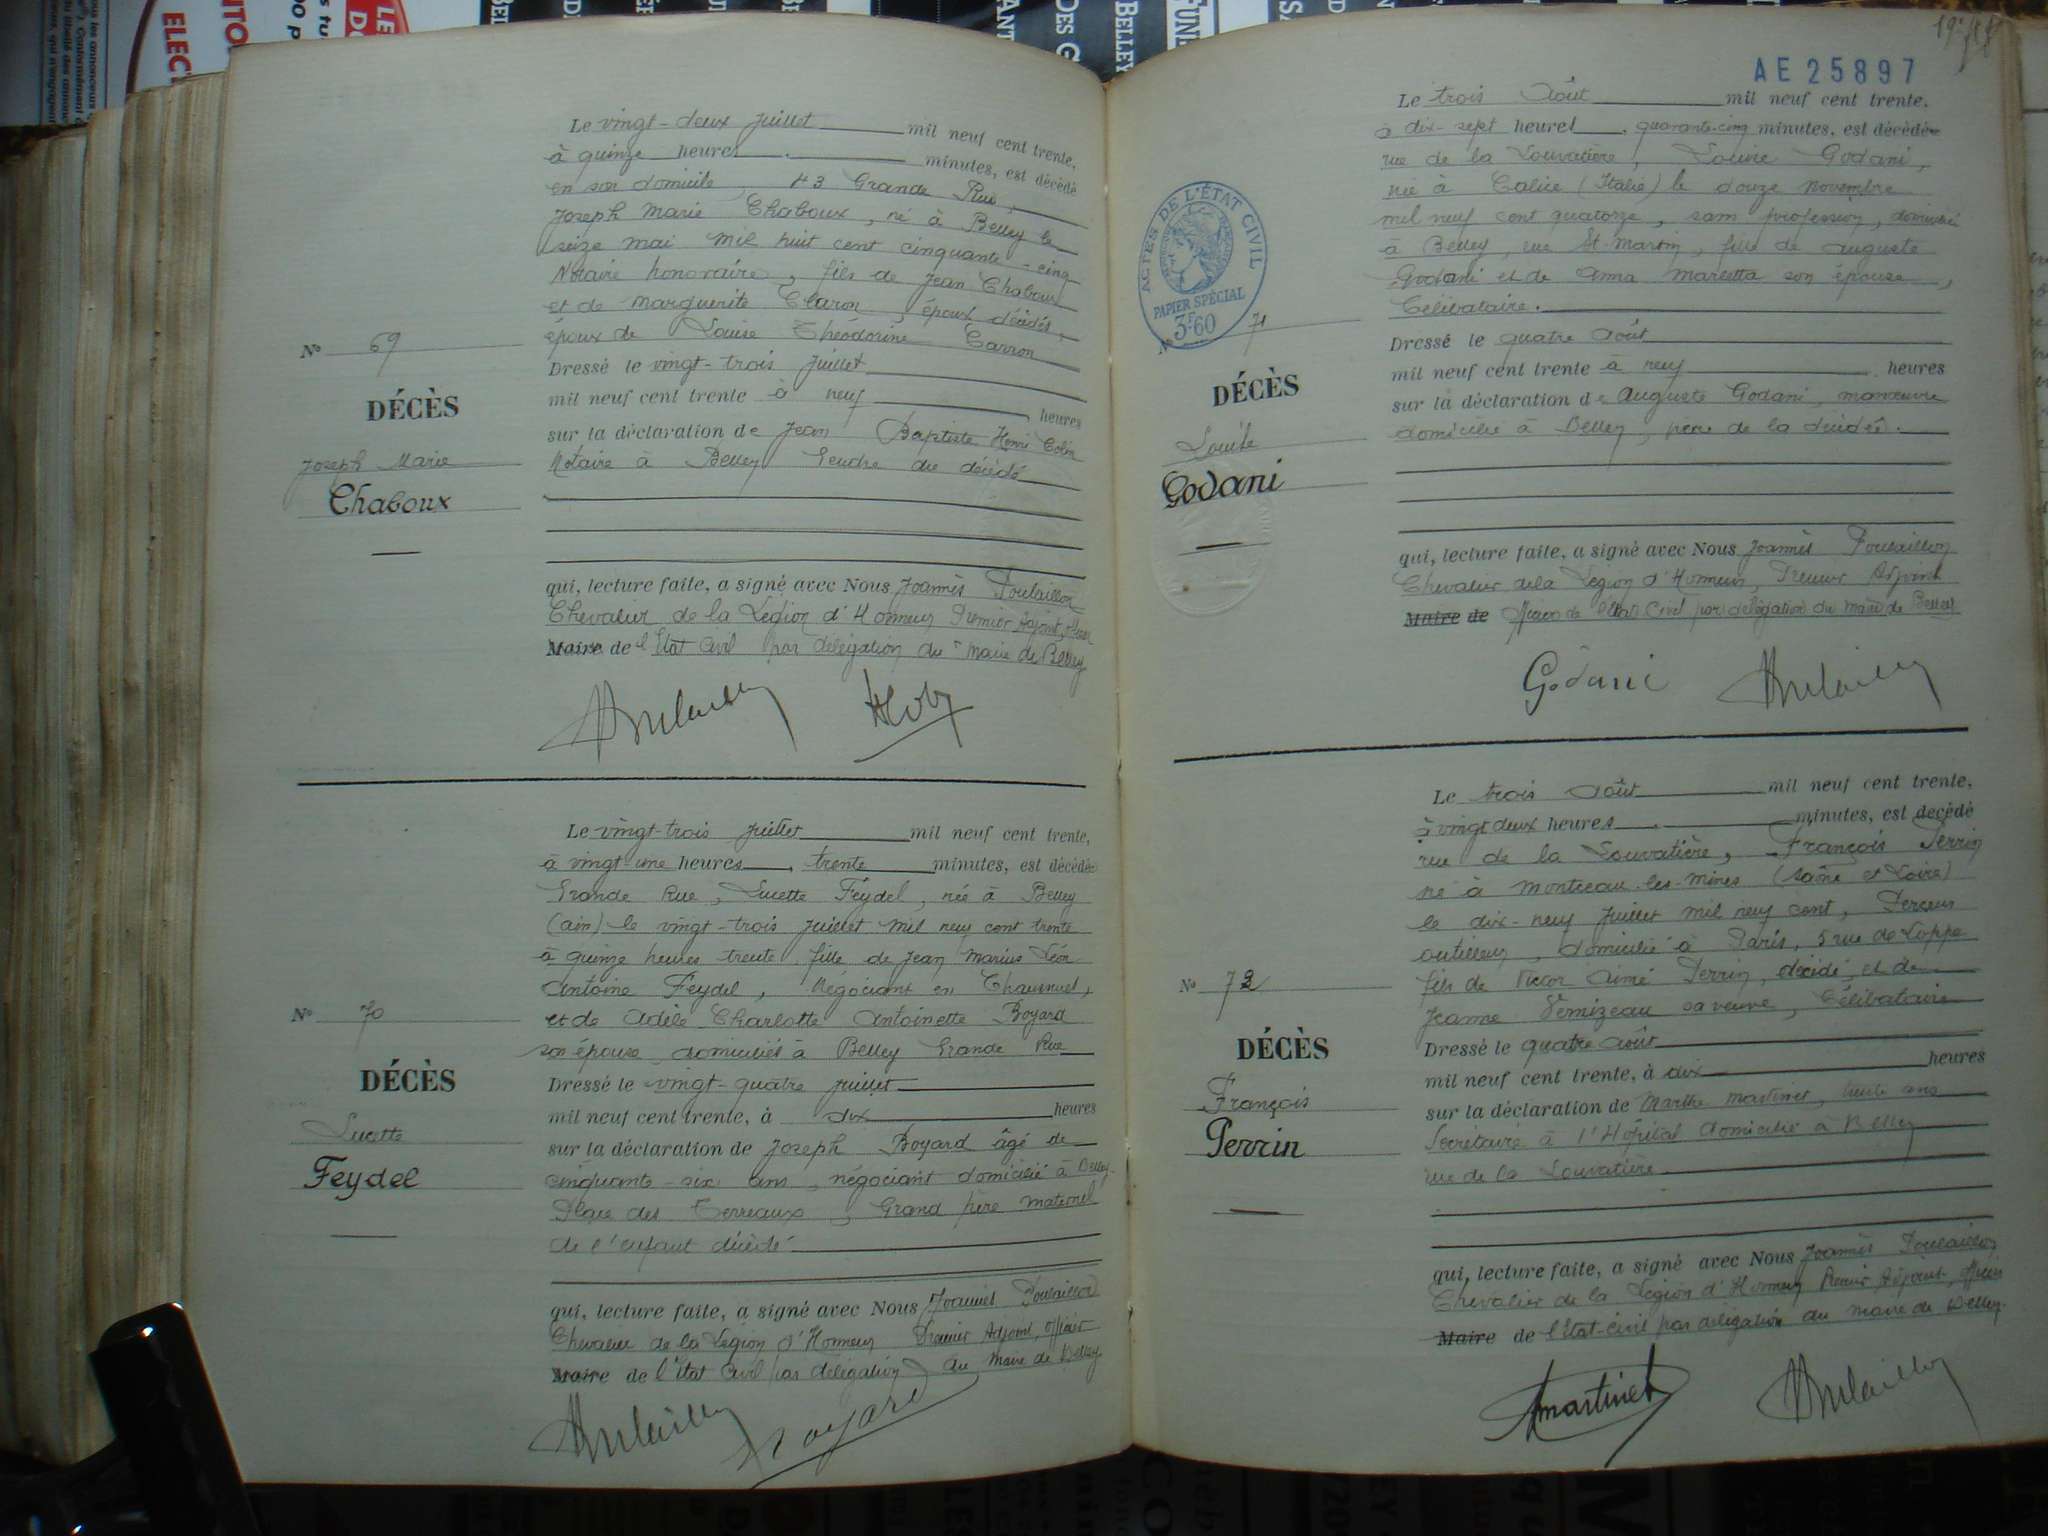 Le vingt-deux juillet mil neuf cent trente,
à quinze heures minutes, est décédé
en son domicile, 43 Grande Rue,
Joseph Marie Chaboux, né à Belley le
seize mai mil huit cent cinquante-cinq
Notaire honoraire, fils de Jean Chaboux
et de Marguerite Claron, époux décédés,
époux de Louise Théodorine Carron
Dressé le vingt-trois juillet
mil neuf cent trente à neuf heures
sur la déclaration de Jean Baptiste Henri
Notaire à Belley Gendre du décédé
qui, lecture faite, a signé avec Nous Joannès Poulaillon
Chevalier de la Légion d'Honneur Premier Adjoint,
Maire de l'Etat Civil par délégation du maire de Belley
No 69
DÉCÈS
Joseph Marie
Chaboux
Le vingt-trois juillet mil neuf cent trente,
à vingt-une heures, trente minutes, est décédée
Grande Rue, Lucette Feydel, née à Belley
(Ain) le vingt-trois juillet mil neuf cent trente
à quinze heures trente fille de Jean Marius Léon
Antoine Feydel, Négociant en
et de Adèle Charlotte Antoinette Boyard
son épouse domiciliés à Belley Grande Rue
Dressé le vingt-quatre juillet
mil neuf cent trente, à dix heures
sur la déclaration de Joseph Boyard âgé de
cinquante-six ans, négociant domicilié à Belley
Place des Terreaux, Grand père maternel
de l'enfant décédé
qui, lecture faite, a signé avec Nous Joannès Poulaillon
Chevalier de la Légion d'Honneur Premier Adjoint, officier
Maire de l'Etat Civil par délégation du Maire de Belley
Boyard
No 70
DÉCÈS
Lucette
Feydel
AE 25897
Le trois Août mil neuf cent trente,
à dix-sept heures, quarante-cinq minutes, est décédée
rue de la Louvatière, Louise Godani,
née à Calice (Italie) le douze novembre
mil neuf cent quatorze, sans profession, domiciliée
à Belley, rue St-Martin, fille de Auguste
Godani et de Anna Maretta son épouse,
Célibataire.
Dressé le quatre Août
mil neuf cent trente à neuf heures
sur la déclaration de Auguste Godani, manœuvre
domicilié à Belley, père de la décédée.
qui, lecture faite, a signé avec Nous Joannès Poulaillon
Chevalier de la Légion d'Honneur, Premier Adjoint
Maire de Officier de l'Etat Civil par délégation du Maire de Belley
Godani
ACTES DE L'ÉTAT CIVIL
PAPIER SPÉCIAL
3F60
No 71
DÉCÈS
Louise
Godani
Le trois Août mil neuf cent trente,
à vingt deux heures minutes, est decédé
rue de la Louvatière, François Perrin
né à Montceau-les-Mines (Saône et Loire)
le dix-neuf juillet mil neuf cent, Perceur
outilleur, domicilié à Paris, 5 rue de Lappe
fils de Victor Aimé Perrin, décédé, et de
Jeanne Vernizeau sa veuve, Célibataire
Dressé le quatre Août
mil neuf cent trente, à dix heures
sur la déclaration de Marthe Martinet, trente ans
Secrétaire à l'Hôpital domiciliée à Belley
rue de la Louvatière
qui, lecture faite, a signé avec Nous Joannès Poulaillon
Chevalier de la Légion d'Honneur Premier Adjoint, officier
Maire de l'Etat-civil par délégation du maire de Belley
Martinet
No 72
DÉCÈS
François
Perrin